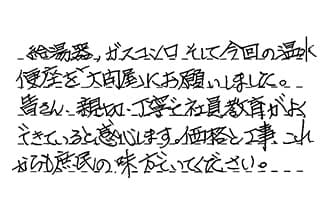 給湯器、ガスコンロ そして今回の温水
便座を「大問屋」にお願いしました。
皆さん、親切、丁寧で社員教育がよ
できていると感じます。価格と工事、これ
からも庶民の味方でいてください。